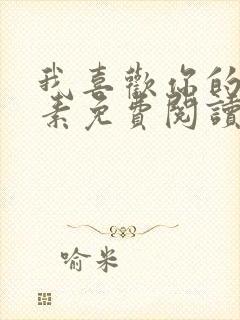 我喜歡你的
素免費閱讀
喻米